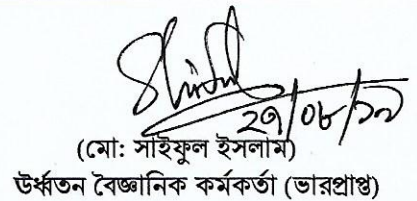 ২৭/০৮/১৭
(মো: সাইফুল ইসলাম)
উর্ধ্বতন বৈজ্ঞানিক কর্মকর্তা (ভারপ্রাপ্ত)